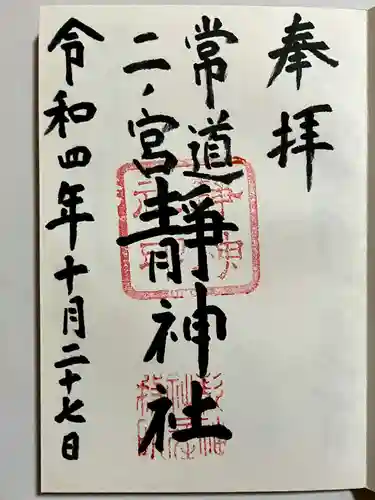 奉拝
常道
二ノ宮
靜神社
令和四年十月二十七日